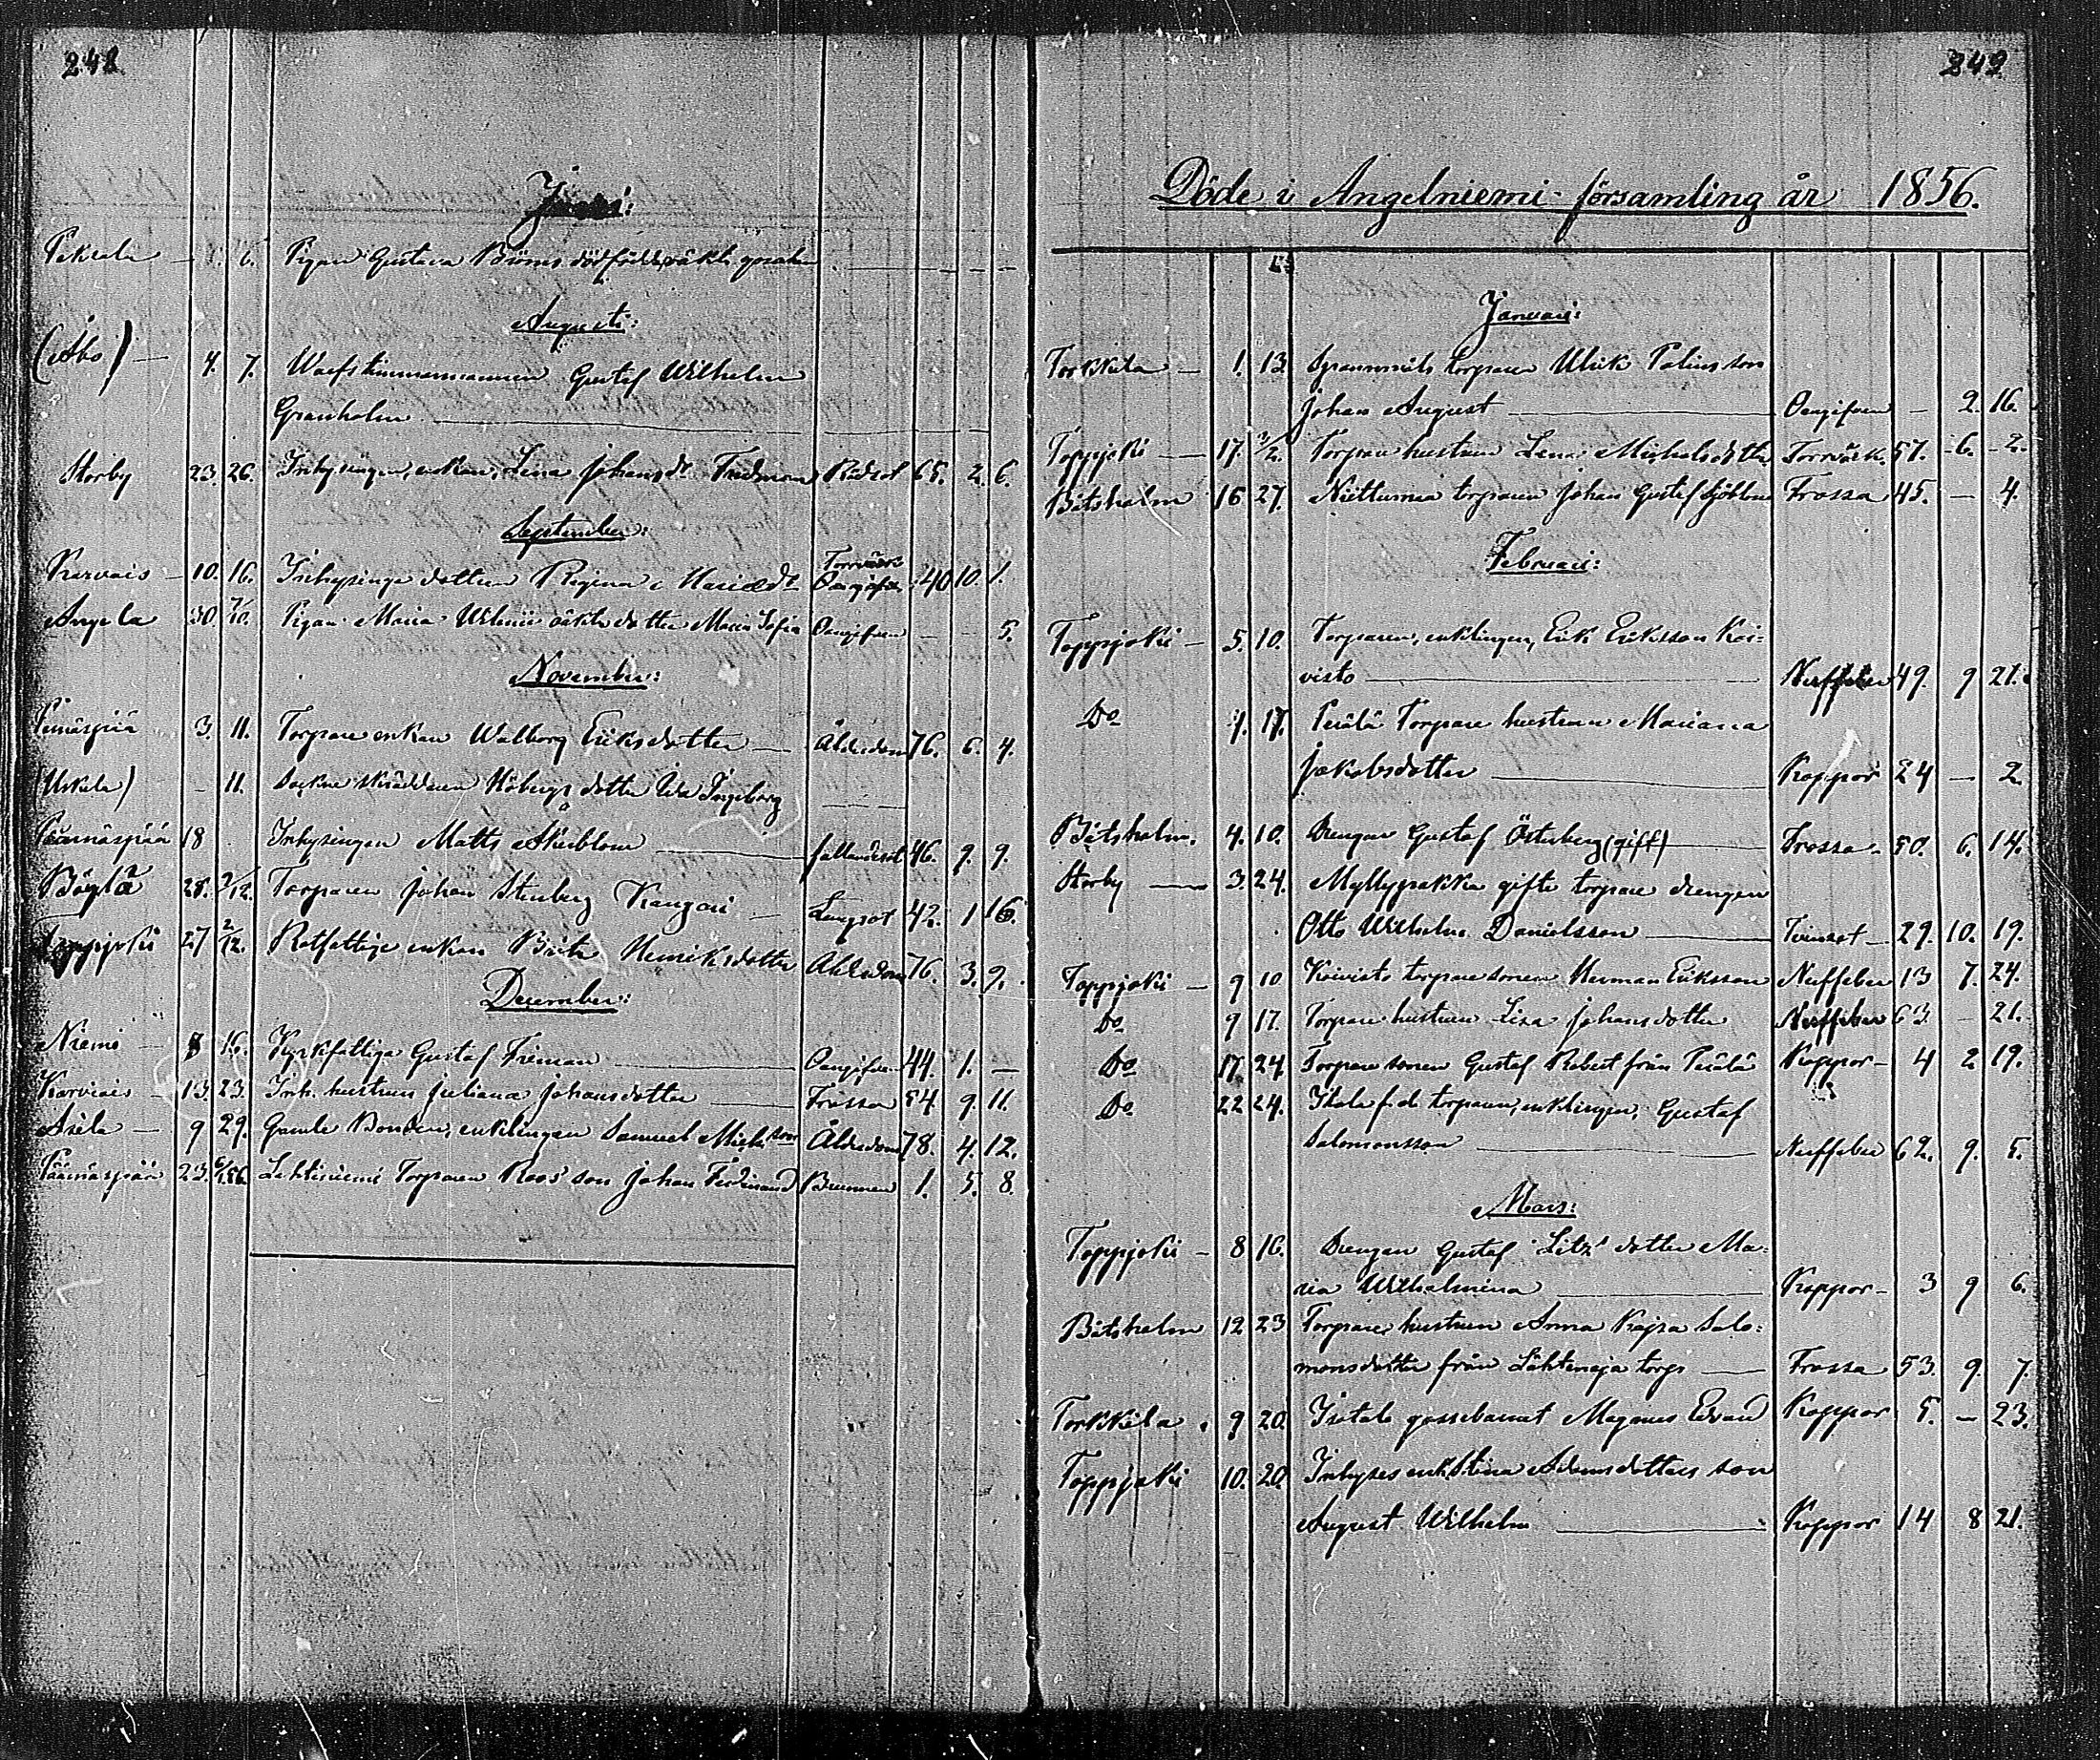 248
Peksala — 6. Pigan Gustava Bröms dödfödde oäkta gossebarn — — —
Augusti:
(Åbo) — 4. 7. Warfstimmermannen Gustaf Wilhelm
Granholm
Storby 23. 26. Inhysingen, enkan, Lena Johansdr Rödsot 65. 2. 6.
September:
Karvais — 10. 16. Inhysinge dottren Regina Mariædr Torrvärk Oangifven 40 10. 1.
Angela 30 7/10. Pigan Maria oäkta dotter Maria Sofia Oangifven — — 5.
November:
3. 11. Torpare enkan Walborg Eriksdotter — Ålderdom 76. 6. 4.
(Uskela) — 11. Sockne skräddaren Högbergs dotter Ida Ingeborg
18 Inhysingen Matts fallandesot 46. 9. 9.
Böylä 28. 2/12. Torparen Johan Stenberg Kangari — Lungsot 42. 1 16.
Toppjoki 27 2/12. Rotfattige enkan Brita Henriksdotter Ålderdom 76. 3. 9.
December:
Niemi — 8 16. Kyrkfattiga Gustaf Friman Oangifven 44. 1. —
Karviais — 13. 23. Inh. hustrun Juliana Johansdotter Frossa 54. 9. 11.
Asila — 9 29. Gamle Bonden, enklingen Samuel Michelsson Ålderdom 78. 4. 12.
Päärnäspää 23. 6/1.56. Lehtiniemi Torparen Roos' son Johan Ferdinand Brunnen 1. 5. 8.
249
Döde i Angelniemi församling år 1856.
Januari:
Torkkila — 1. 13. torparen Ulrik Palins son
Johan August Oangifven — 2. 16.
Toppjoki — 17. 3/2. Torpare hustrun Lena Michelsdotter Torrvärk. 57. 6. 2.
Båtsholm 16 27. Niittumaa torparen Johan Gustaf Sjöblom Frossa 45. — 4.
Februari:
Toppjoki — 5. 10. Torparen, enklingen, Erik Eriksson Koi=
visto Nerffeber 49. 9 21.
Do 7. 17. Perälä Torpare hustrun Mariana
Jakobsdotter Koppor 24 — 2.
Båtsholm. 4. 10. Drengen Gustaf Österberg (gift) Frossa — 50. 6. 14.
Storby — 3. 24. Myllypakka gifte torpare drengen
Otto Wilhelm Danielsson Tvinsot — 29. 10. 19.
Toppjoki — 9 10 Koivisto torparesonen Herman Eriksson Nerffeber 13 7. 24.
Do 9 17. Torpare hustrun Lisa Johansdotter Nerffeber 63. — 21.
Do 17. 24. Torparesonen Gustaf Robert från Perälä Koppor — 4 2 19.
Do 22 24. f.d. torparen, enklingen, Gustaf
Salomonsson Nerffeber 62. 9. 5.
Mars:
Toppjoki — 8 16. Drengen Gustaf Litz' dotter Ma=
ria Wilhelmina Koppor — 3 9 6.
Båtsholm 12 23 Torpare hustrun Anna Kajsa Salo=
monsdotter från Lähteenoja torp Frossa 53. 9. 7.
Torkkila 9 20. Isotalo gossebarnet Magnus Edvard Koppor 5. — 23.
Toppjoki 10. 20. Inhyses enk. Stina Adamsdotters son
August Wilhelm Koppor 14 8 21.